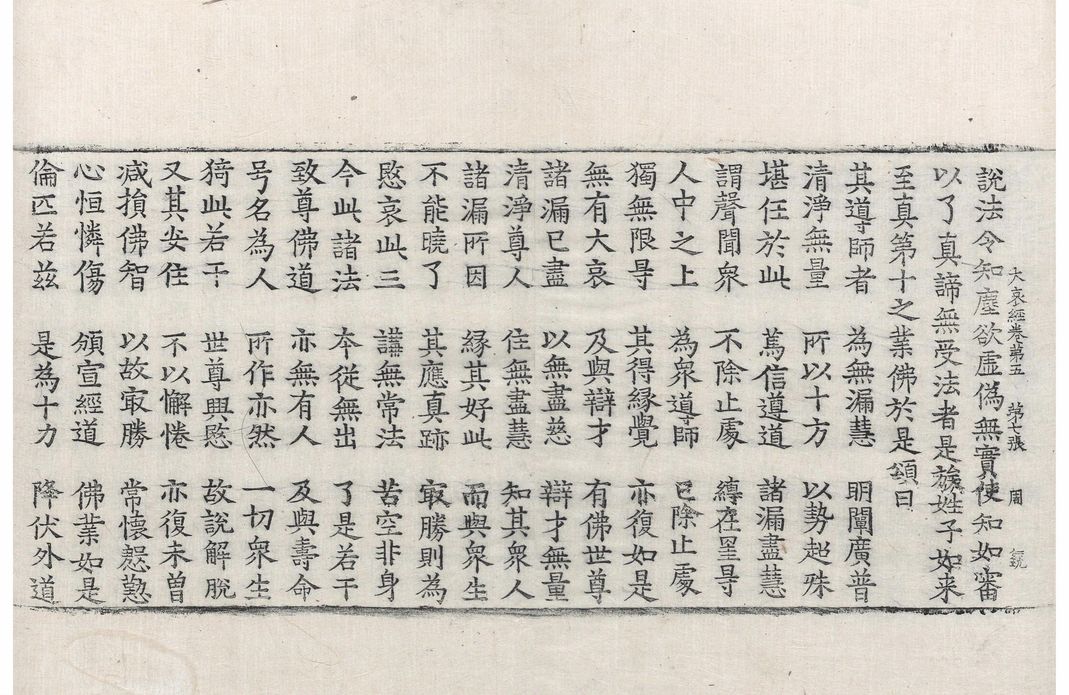 大哀經卷第五 第七張 周
說法令知塵欲虛偽無實使知如審
以了真諦無受法者是族姓子如来
至真第十之業佛於是頌曰
其道導師者 為無漏慧 明闡廣普
清淨無量 所以十方 以勢超殊
堪任於此 篤信導道 諸漏盡慧
謂聲聞衆 不除止處 縛在罣㝵
人中之上 為衆導師 已除止處
獨無限㝵 其得緣覺 亦復如是
無有大哀 及與辯才 有佛世尊
諸漏已盡 以無盡慈 辯才無量
清淨尊人 住無盡慧 知其衆人
諸漏所因 緣其好此 而與衆生
不能曉了 其應真跡 㝡勝則為
愍哀此三 講無常法 苦空非身
今此諸法 夲從無出 了是若干
致尊佛道 亦無有人 及與壽命
号名為人 所作亦然 一切衆生
猗此若干 世尊興愍 故說解脫
又其安住 不以懈惓 亦復未曾
减損佛智 以故㝡勝 常懷懇懃
心恒憐傷 頒宣經道 佛業如是
倫匹若茲 是為十力 降伏外道